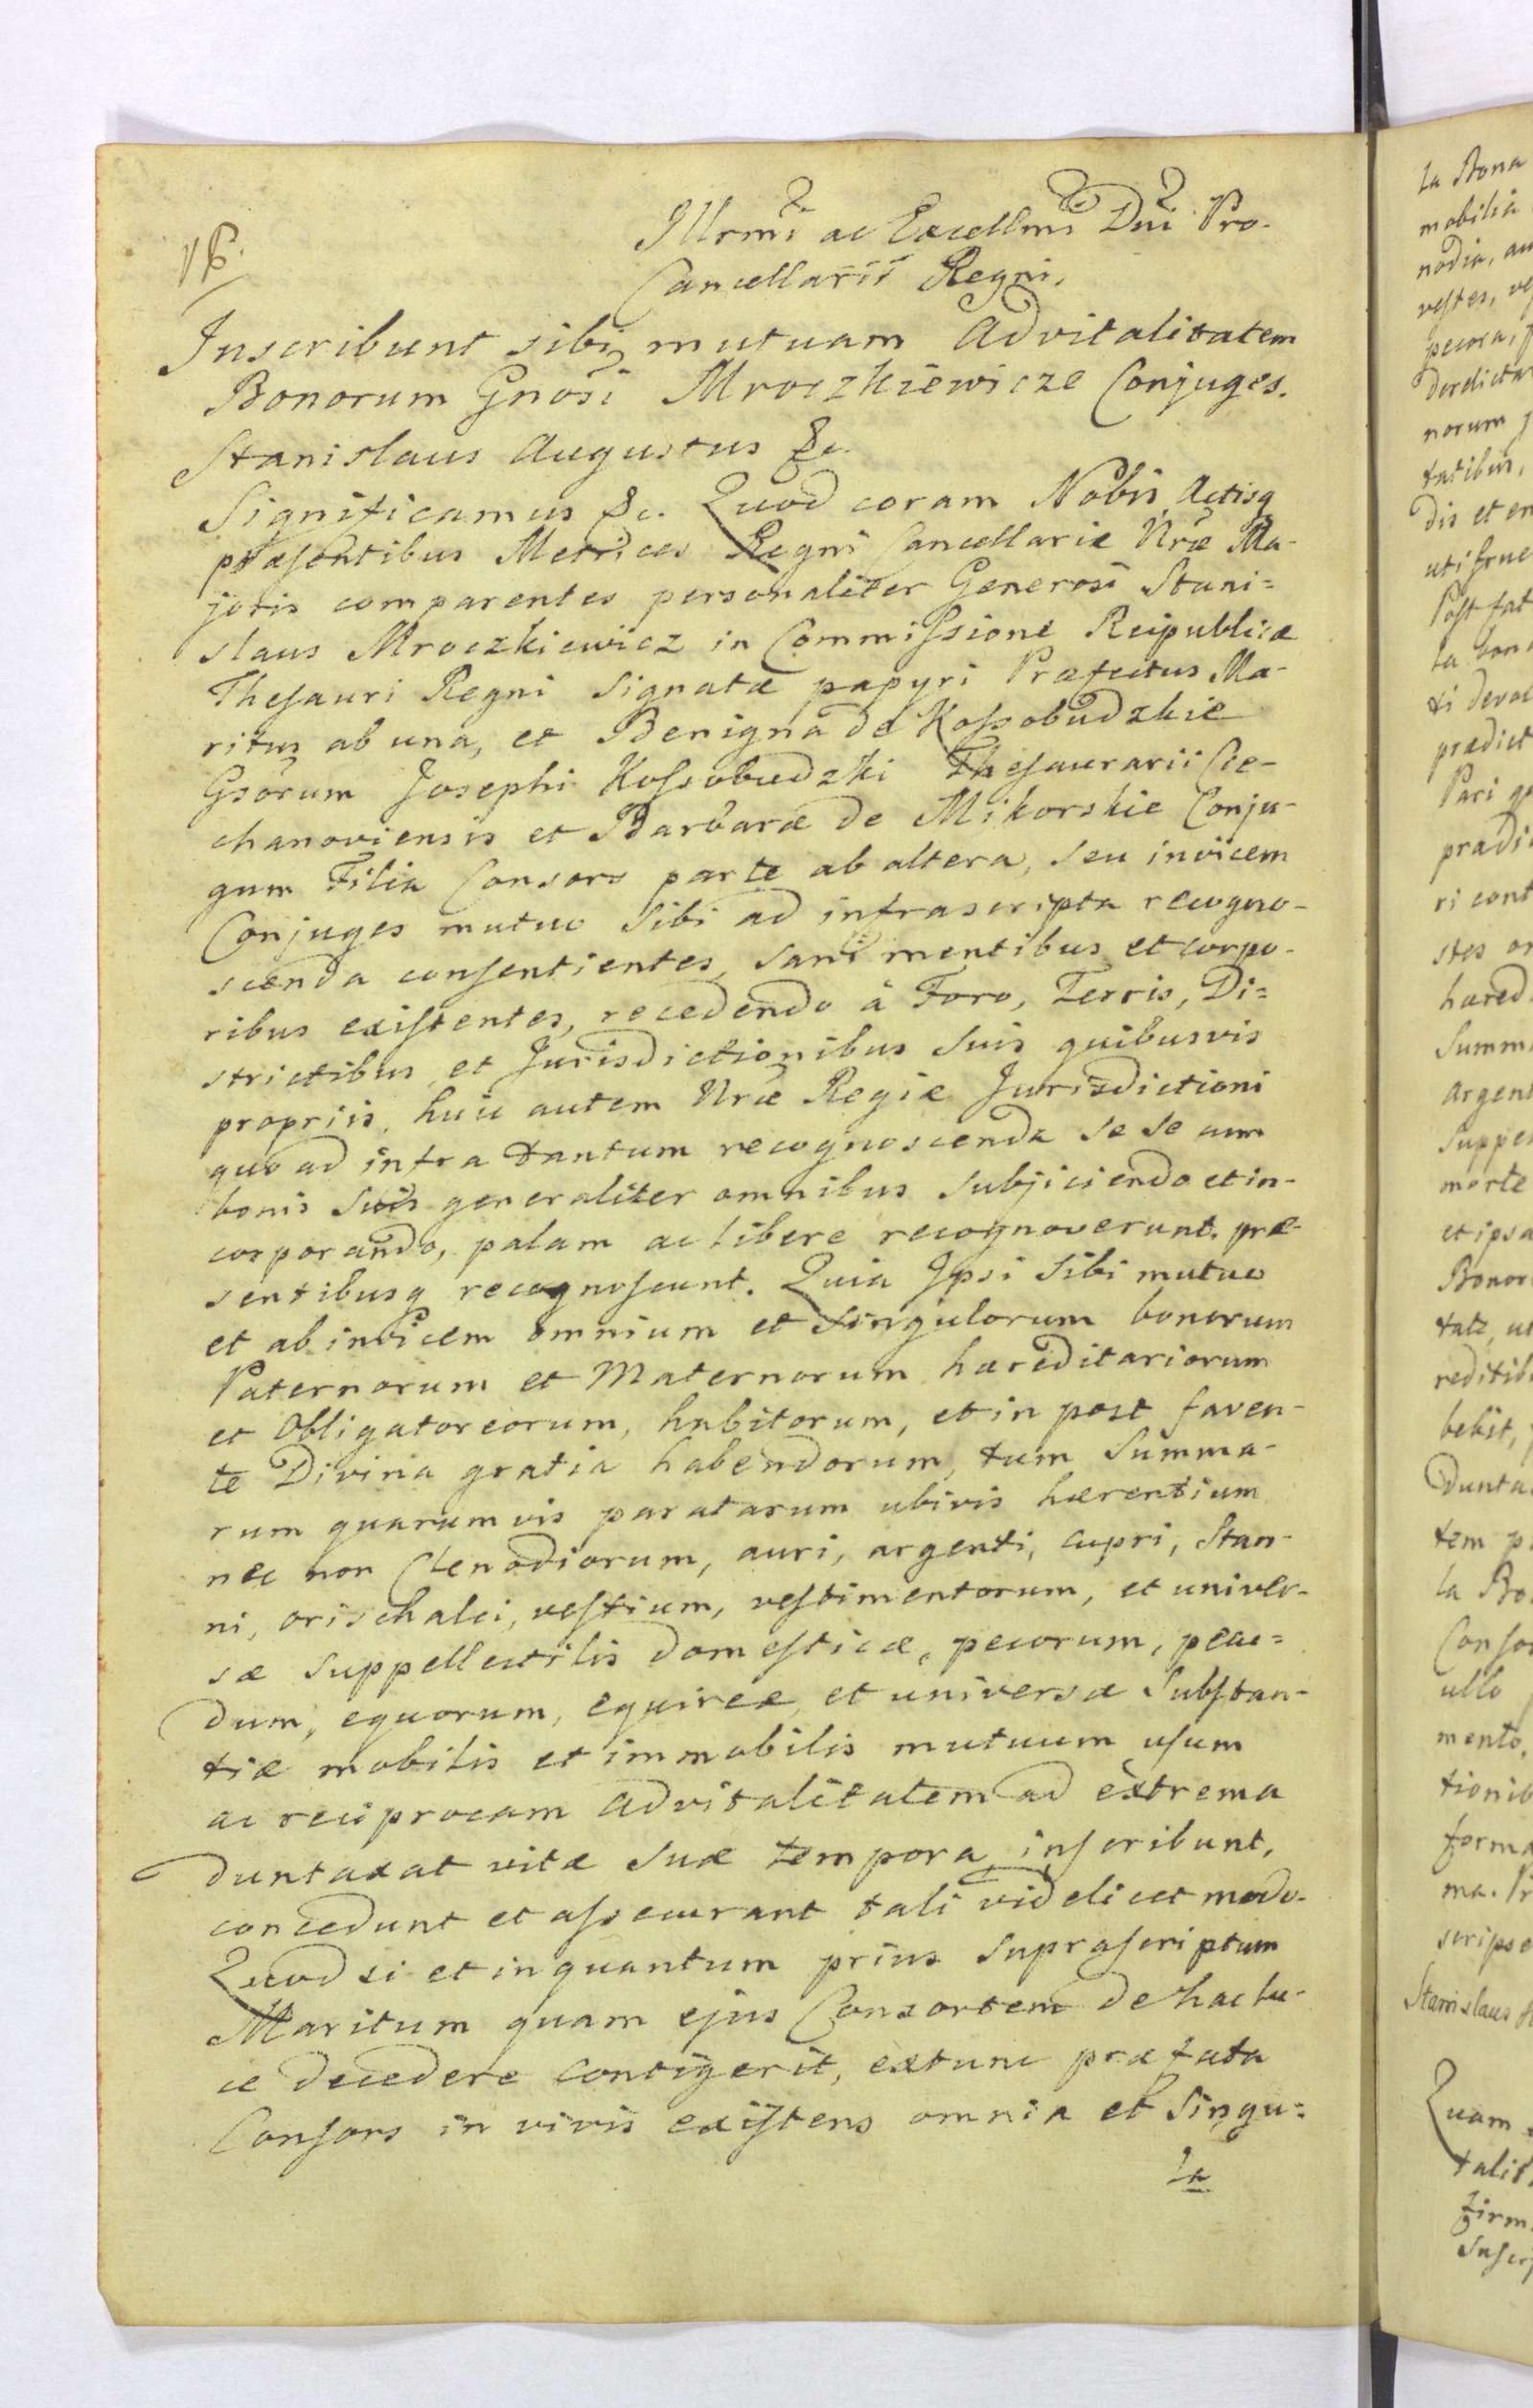 16.
Illrmi ac Excellmi Dni Pro-
Cancellarii Regni.
Inscribunt sibi mutuam Advitalitatem
Bonorum Gnosi Mroczkiewicze Conjuges.
Stanislaus Augustus &c.
Significamus &c. Quod coram Nobis Actisq
præsentibus Metrices Regni Cancellariæ Nræ Ma-
joris comparentes personaliter Generosi Stani=
slaus Mroczkiewicz in Commissione Reipublicæ
Thesauri Regni Signatæ papyri Præfectus Ma-
ritus ab una, et Benigna de Kossobudzkie
Gsorum Josephi Kossobudzki Thesaurarii Cie-
chanoviensis et Barbaræ de Mikorskie Conju-
gum Filia Consors parte ab altera, seu invicem
Conjuges mutuo Sibi ad infrascripta recogno-
scenda consentientes, sani mentibus et corpo-
ribus existentes, recedendo à Foro, Terris, Di=
strictibus et Jurisdictionibus Suis quibusvis
propriis, huic autem Nræ Regiæ Jurisdictioni
quo ad infra tantum recognoscenda se se cum
bonis Suis generaliter omnibus subjiciendo et in-
corporando, palam ac libere recognoverunt. præ-
sentibusq recognoscunt. Quia Ipsi Sibi mutuo
et ab invicem omnium et Singulorum bonorum
Paternorum et Maternorum hæreditariorum
et Obligatoreorum, habitorum, et in post faven-
te Divina gratia habendorum, tum Summa-
rum quarumvis paratarum ubivis hærentium
nec non Clenodiorum, auri, argenti, cupri, Stan-
ni, orischalci, vestium, vestimentorum, et univer-
sæ Suppellectilis domesticæ, pecorum, pecu=
dum, equorum, equireæ, et universæ Substan-
tiæ mobilis et immobilis mutuum usum
ac reciprocam Advitalitatem ad extrema
duntaxat vitæ Suæ tempora inscribunt,
concedunt et assecurant tali videlicet modo.
Quod si et inquantum prius Suprascriptum
Maritum quam ejus Consortem de hac lu-
ce decedere Contigerit, extunc præfata
Consors in vivis existens omnia et Singu=
la
la Bona
mobilia
nodia, au
vestes, ve
pecora, p
norum
tatibus,
dis et en
uti frue
Post fat
la bona
ti devol
prædict
Pari
prædi
ri cont
stes
hæred
Summ
Argen
Suppe
morte
et ipsa
Bonor
tate, u
reditib
bebit,
Dunta
tem p
la Bo
Consor
ullo
mento,
tionib
forma
ma. Pr
scripse
Stanislaus
Quam
talit
firm
Suscr